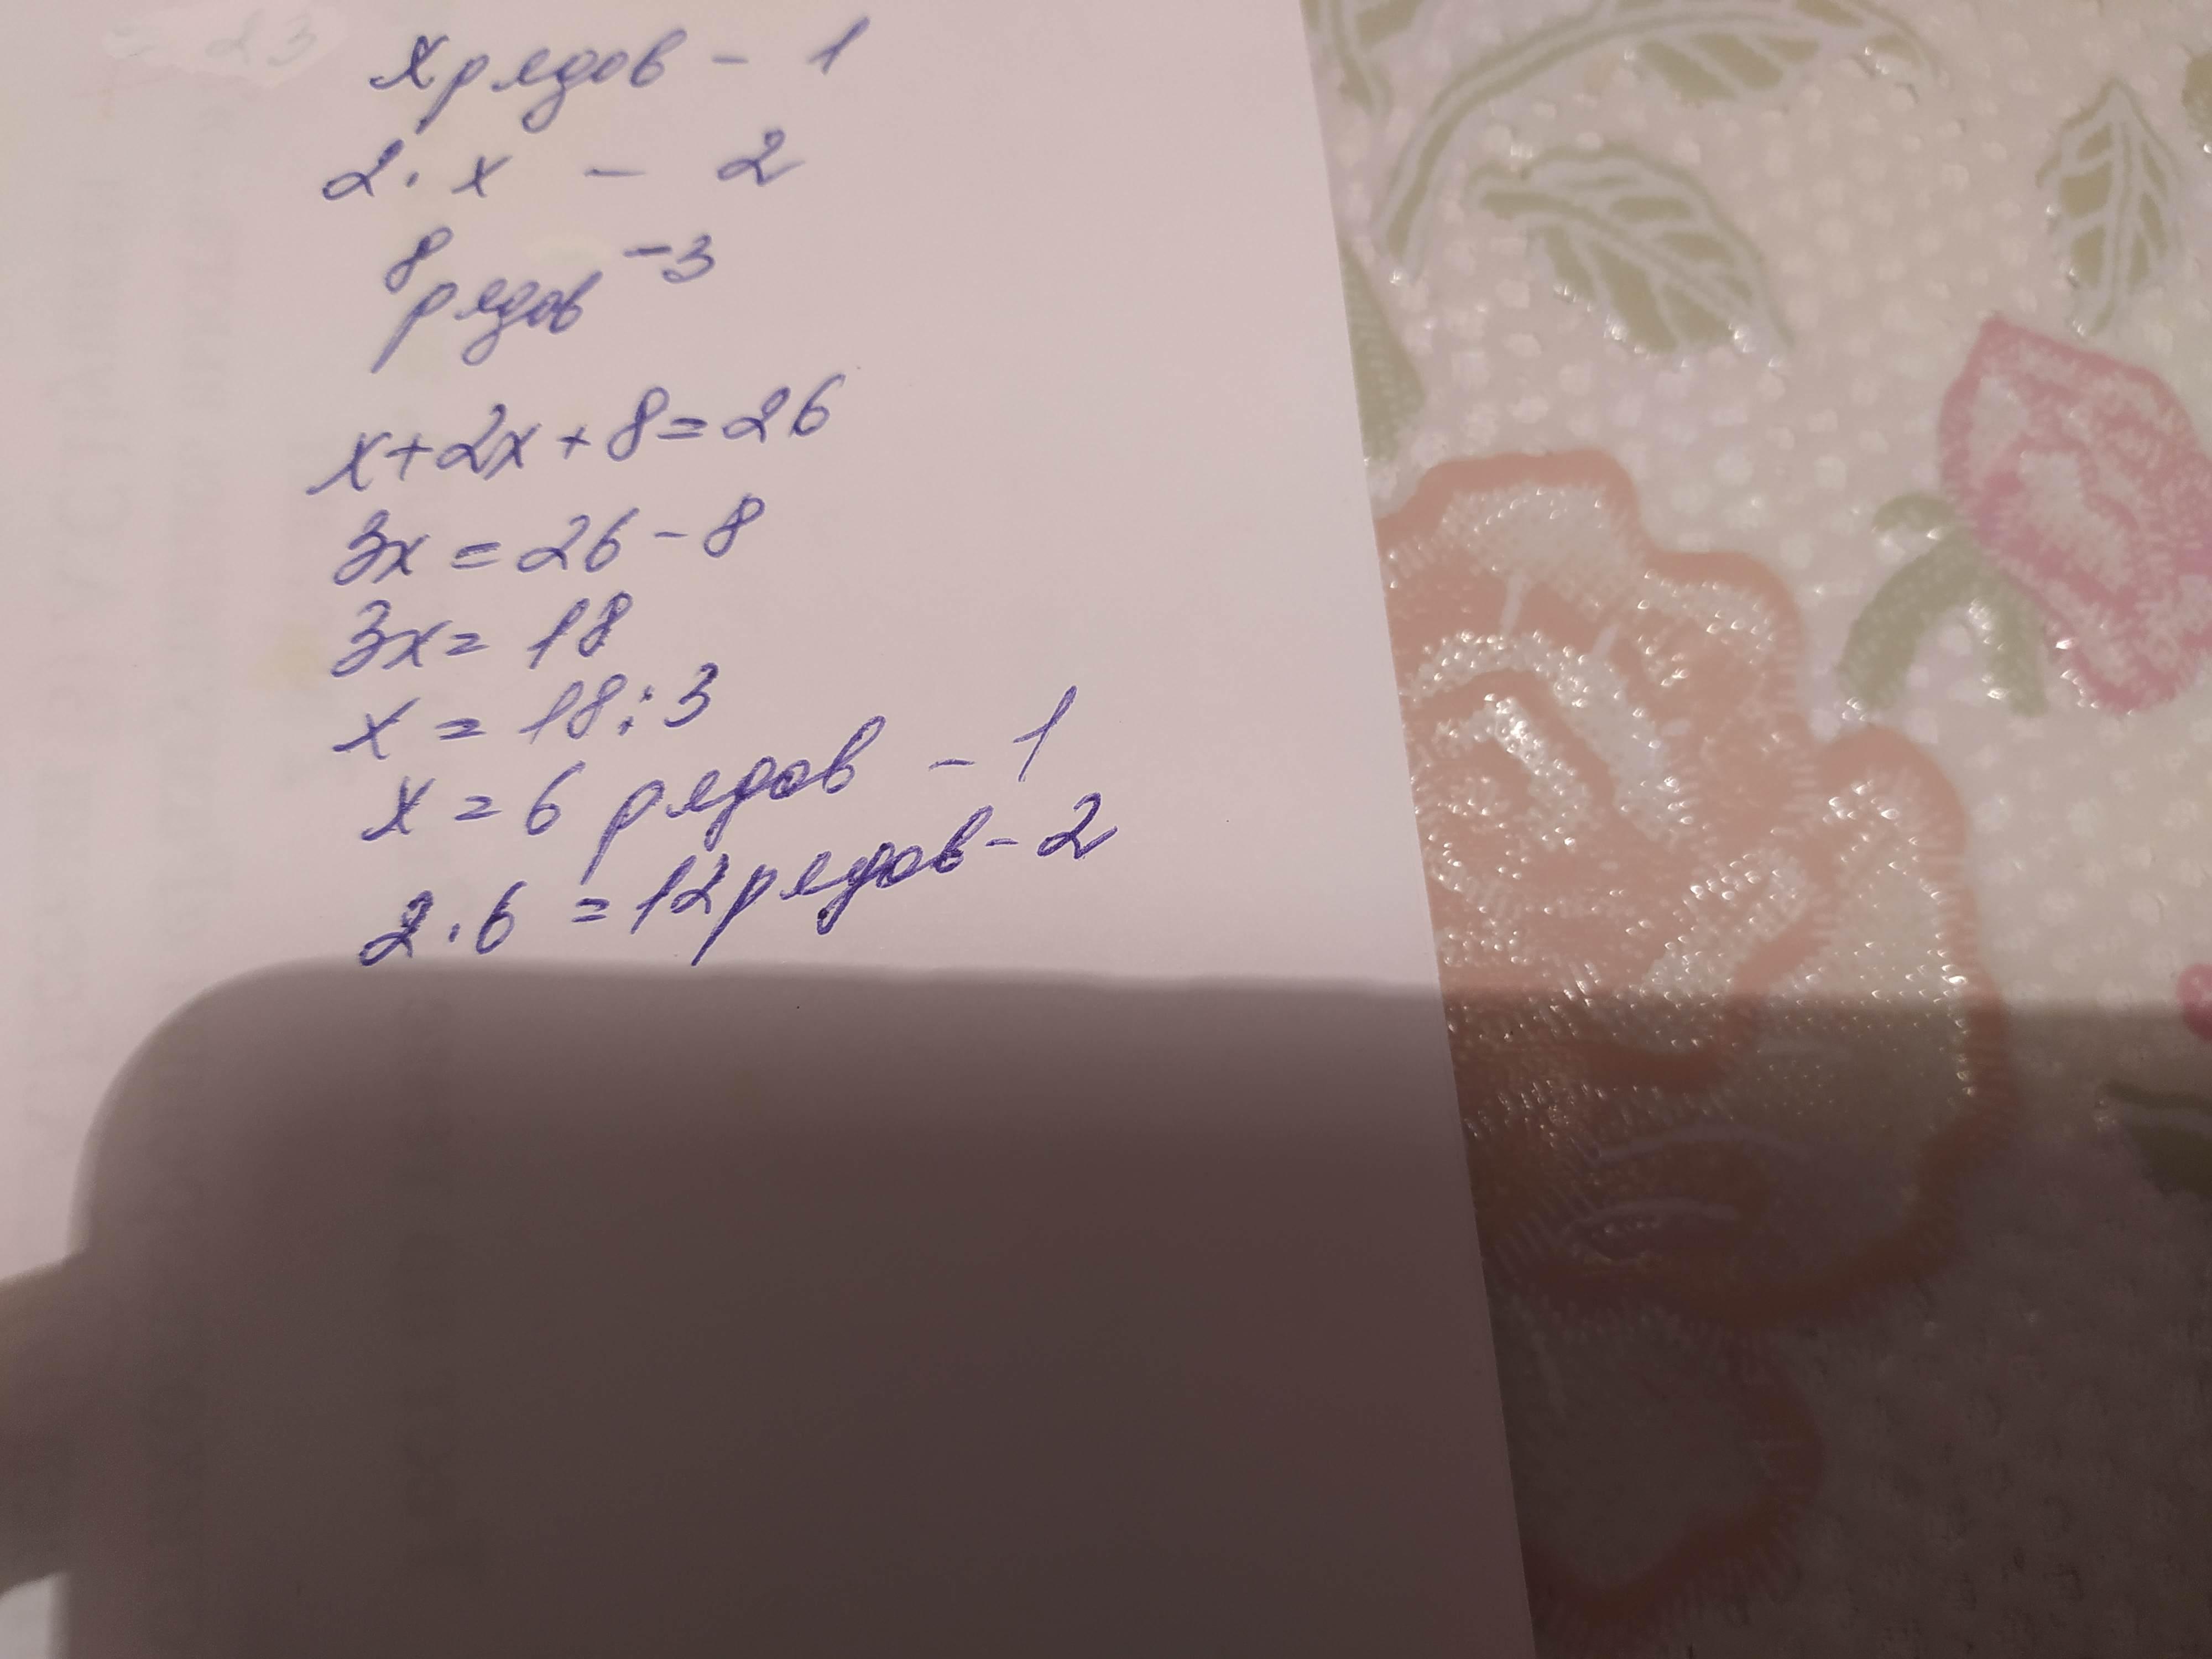 = 23
x рядов - 1
2 · x - 2
8 рядов - 3
x + 2x + 8 = 26
3x = 26 - 8
3x = 18
x = 18 : 3
x = 6 рядов - 1
2 · 6 = 12 рядов - 2